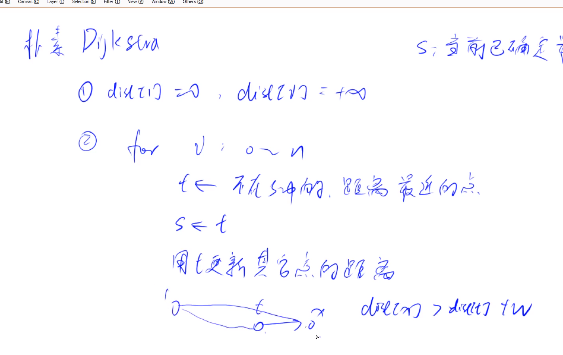 朴素 Dijkstra
s: 当前已确定
① dist[1] = 0, dist[v] = +∞
② for v: 0 ~ n
t ← 不在s中的, 距离最近的点
s ← t
用t更新其它点的距离
1 t x
dist[x] > dist[t] + w